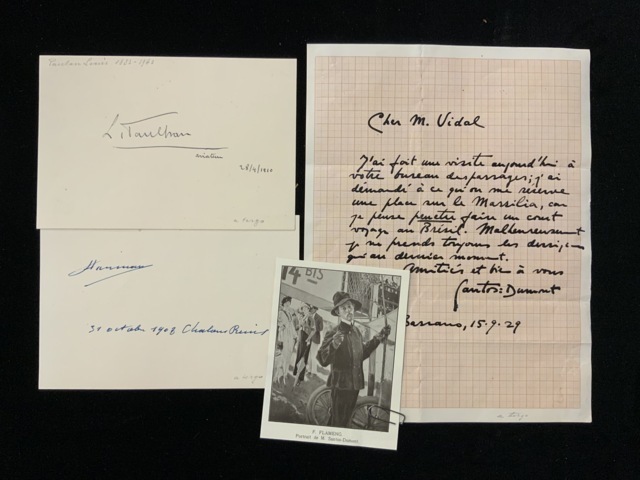 Paulhan Louis 1883-1963
L. Paulhan
aviateur
28/4/1910
Farman
30 octobre 1908 Chalons Reims
Cher M. Vidal
J'ai fait une visite aujourd'hui à
votre bureau des passages; j'ai
demandé à ce qu'on me réserve
une place sur le Massilia, car
je pense peuetre faire un court
voyage au Brésil. Malheureusement
je ne prends toujours les
qui au dernier moment.
Amitiés et bien à vous
Santos=Dumont
15.9.29
14 BIS
F. FLAMENG.
Portrait de M. Santos-Dumont.